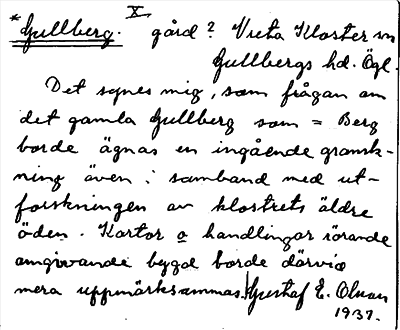 *Gullberg. X gård? Vreta Kloster sn
Gullbergs hd. Ögl.
Det synes mig, som frågan om
det gamla Gullberg som = Berg
borde ägnas en ingående gransk-
ning även i samband med ut-
forskningen av klostrets äldre
öden. Kartor o handlingar rörande
omgivande bygd borde därvid
mera uppmärksammas. Gustaf E. Olsson
1937.